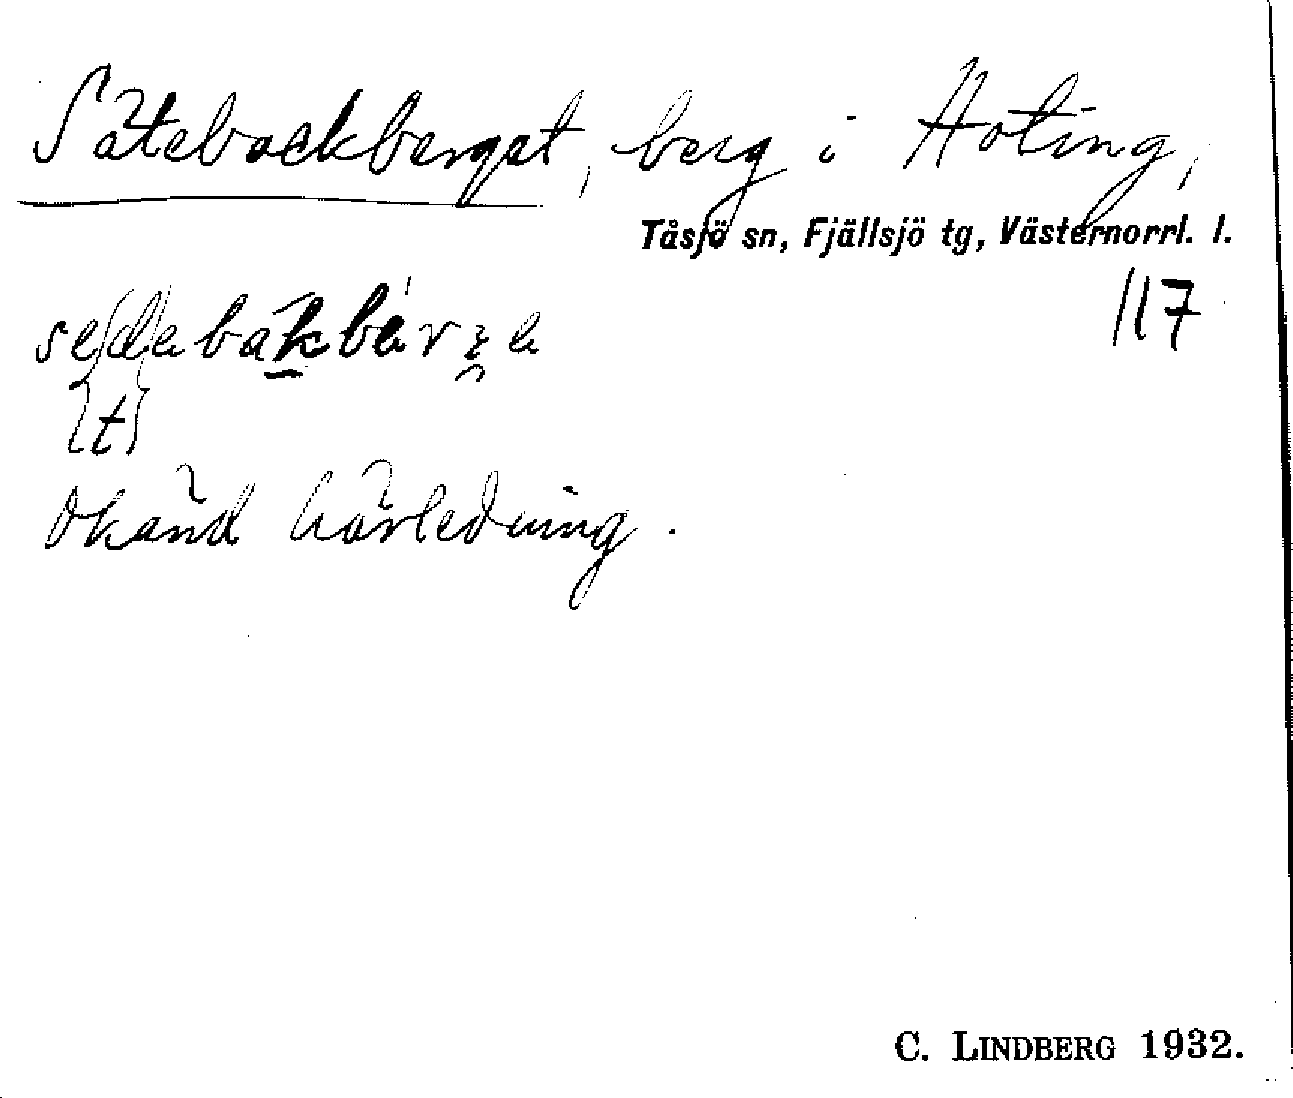 Sätebockberget, berg i Hoting,
Tåsjö sn, Fjällsjö tg, Västernorrl. l.
117
{t}
Okänd härledning.
C. LINDBERG 1932.